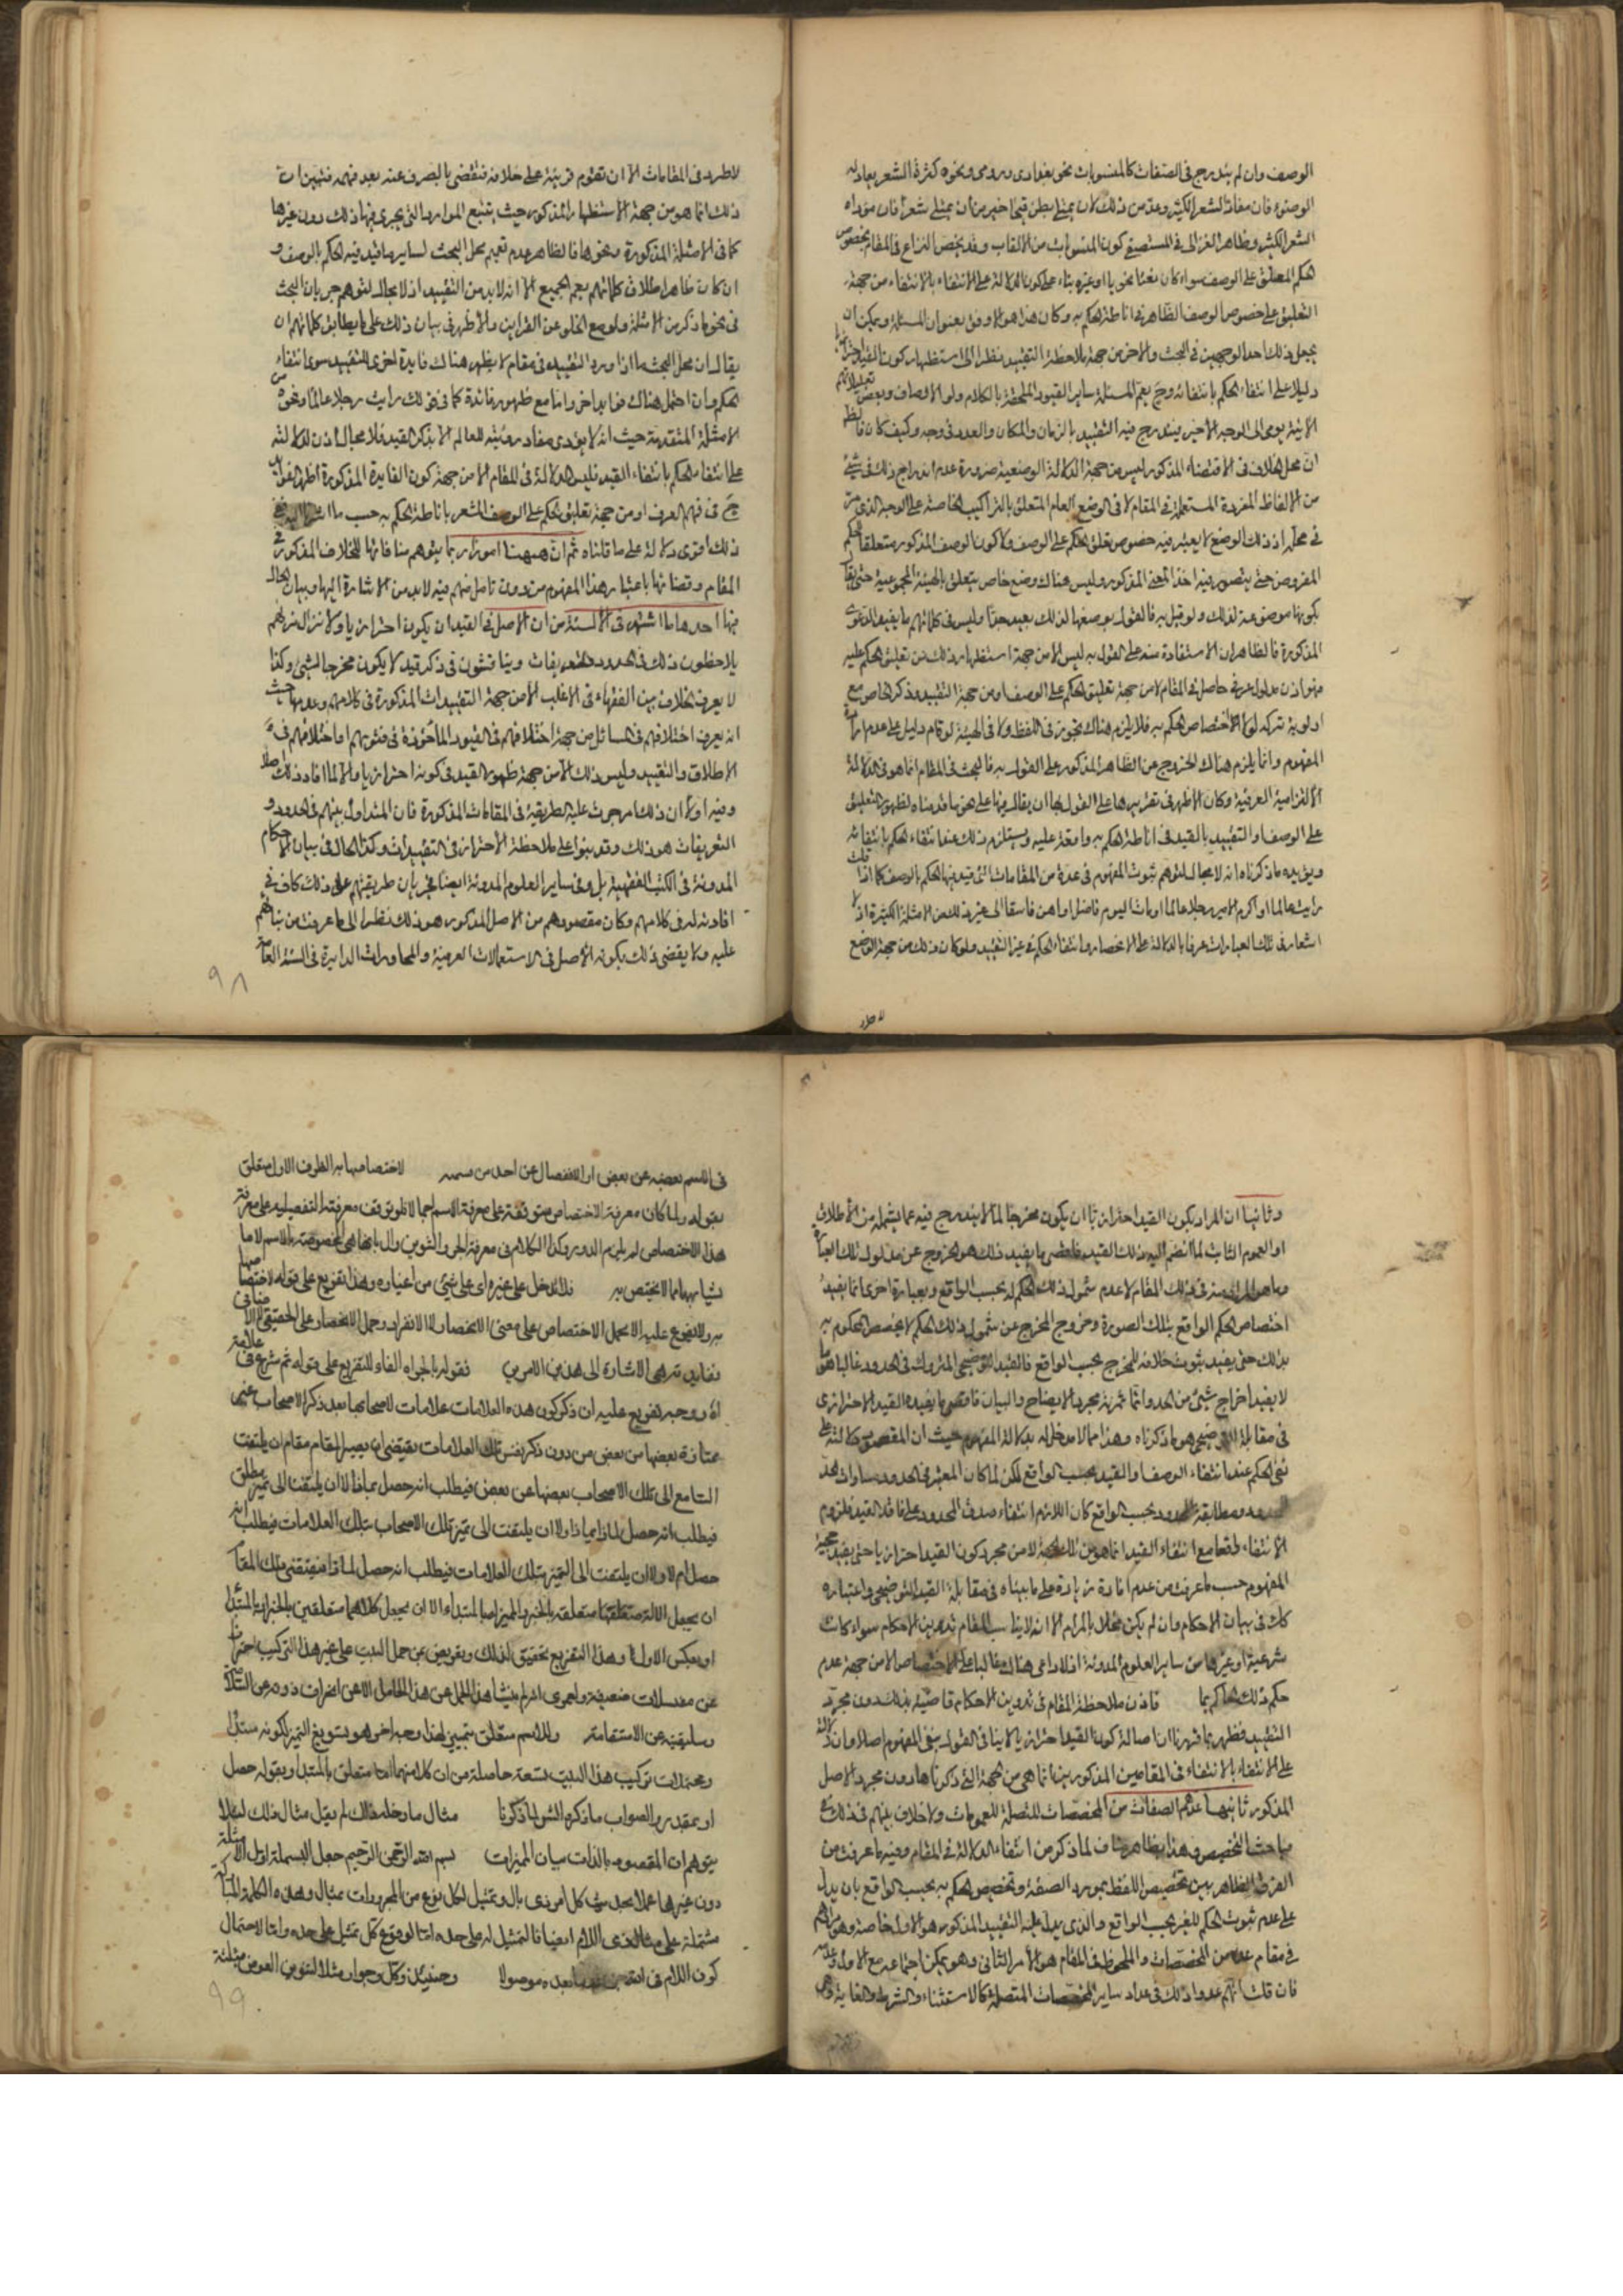 الوصف وان لم يندرج فى الصفات كالمنسوبات نحو بغدادى ورومى ونحوه كثرة الشعر بعادله
الوصفه فان مفاد الشعر الكثير وعد من ذلك لان يمتلى بطن قيحا خير من ان يمتلى شعرا فان مؤداه
الشعر الكثير وظاهر الغزالى فى المستصفى كون المنسوبات من الالقاب وقد يخص النزاع فى المقام بخصوص
الحكم المعلق على الوصف سواء كان نعتا نحويا او غيره بناء على كون الدلالة على الانتفاء بالانتفاء من جهة
التعليق على خصوص الوصف الظاهر فى اناطة الحكم به وكان هذا هو الاوفق بعنوان المسئلة ويمكن ان
يجعل ذلك احد الوجهين فى البحث والاخر من جهة ملاحظة التقييد نظرا الى استظهار كون القيد احترازيا
دليلا على انتفاء الحكم بانتفائه وح يعم المسئلة ساير القيود الملحقة بالكلام ولو الاوصاف وبعض تعليلاتهم
الاتية يومى الى الوجه الاخير فيندرج فيه التقييد بالزمان والمكان والعدد فى وجه وكيف كان فالظ
ان محل الخلاف فى الاقتضاء المذكور ليس من جهة الدلالة الوضعية ضرورة عدم اندراج ذلك فى شئ
من الالفاظ المفردة المستعملة فى المقام لا فى الوضع العام المتعلق بالتراكيب الخاصة على الوجه الذى مر
فى محله اذ ذلك الوضع لا يعتبر فيه خصوص تعلق الحكم على الوصف ولا كون الوصف المذكور متعلقا للحكم
المفروض حتى يتصور فيه اخذ المعنى المذكور وليس هناك وضع خاص يتعلق بالهيئة المجموعية حتى يقا
بكونها موضوعة لذلك ولو قيل به فالقول بوضعها لذلك بعيد جدا وليس فى كلماتهم ما يفيد الدعوى
المذكورة فالظاهر ان الاستفادة منه على القول به ليس الا من جهة استظهار ذلك من تعليق الحكم عليه
فهو اذن مدلول عرفى حاصل فى المقام لا من جهة تعليق الحكم على الوصف او من جهة التقييد وذكر الخاص مع
اولوية تركه لولا الاختصاص الحكم به فلا يلزم هناك تجوز فى اللفظ ولا فى الهيئة لو قام دليل على عدم ارادة
المفهوم وانما يلزم هناك الخروج عن الظاهر المذكور على القول به فالبحث فى المقام انما هو فى الدلالة
الالتزامية العرفية وكان الاظهر فى تقريرها على القول بها ان يقال فيها على نحو ما قدمناه لظهور التعليق
على الوصف او التقييد بالقيد فى اناطة الحكم به وامعة عليه ويستلزم ذلك عندنا انتفاء الحكم بانتفائه
ويؤيده ما ذكرناه انه لا مجال لتوهم ثبوت المفهوم فى عدة من المقامات التى قيد فيها الحكم بالوصف كما اذا قلت
رايت عالما او اكرم الامير رجلا عالما او مات اليوم فاضل او اهن فاسقا الى غير ذلك من الامثلة الكثيرة اذ لا
اشعار فى تلك العبارات عرفا بالدلالة على الانحصار وانتفاء الحكم فى غير التقييد ولو كان ذلك من جهة الوضع
لاطرد
لاطرد فى المقامات الا ان تقوم قرينة على خلافه فتقضى بالصرف عنه بعد فهمه فتبين ان
ذلك انما هو من جهة الاستظهار المذكور حيث يتتبع الموارد التى يجرى فيها ذلك دون غيرها
كما فى الامثلة المذكورة ونحوها فالظاهر عدم تعميم محل البحث لساير ما قيد فيه الحكم بالوصف و
ان كان ظاهر اطلاق كلماتهم يعم الجميع الا انه لا بد من التقييد اذ لا مجال لتوهم جريان البحث
فى نحو ما ذكر من الامثلة ولو مع الخلو عن القراين والاظهر فى بيان ذلك على ما يطابق كلماتهم ان
يقال ان محل البحث ما اذا ورد التقييد فى مقام لا يظهر هناك فايدة اخرى للتقييد سوى انتفاء
الحكم وان احتمل هناك فوايد اخر واما مع ظهور فائدة كما فى قولك رايت رجلا عالما ونحوه من
الامثلة المتقدمة حيث انه لا يؤدى مفاد رؤيته للعالم الا بذكر القيد فلا مجال اذن للدلالة
على انتفاء الحكم بانتفاء القيد فليس الدلالة فى المقام الا من جهة كون الفايدة المذكورة اظهر الفوايد
ح فى فهم العرف او من جهة تعليق الحكم على الوصف المشعر باناطة الحكم به حسب ما اشرنا اليه
ذلك اقوى دلالة على ما قلناه ثم ان ههنا امورا ربما يتوهم منافاتها للخلاف المذكور فى
المقام وقضائها باعتبار هذا المفهوم من دون تامل منهم فيه لا بد من الاشارة اليها وبيان الحال
فيها احدها ما اشتهر فى الالسنة من ان الاصل فى القيد ان يكون احترازيا ولا نزال نريهم
يلاحظون ذلك فى الحدود والتعريفات ويناقشون فى ذكر قيد لا يكون مخرجا لشئ وكذا
لا يعرف الخلاف بين الفقهاء فى الاغلب الا من جهة التقييدات المذكورة فى كلامهم وعدمها حيث
انه يعرف اختلافهم فى المسائل من جهة اختلافهم فى القيود الماخوذة فى فتويهم او اختلافهم فى
الاطلاق والتقييد وليس ذلك الا من جهة ظهور القيد فى كونه احترازيا والا لما افاد ذلك اصلا
وفيه اولا ان ذلك مما جرت عليه الطريقة فى المقامات المذكورة فان المتداول بينهم فى الحدود و
التعريفات هو ذلك وقد بنوا على ملاحظة الاحتراز فى التقييدات وكذا الحال فى بيان الاحكام
المدونة فى الكتب الفقهية بل وفى ساير العلوم المدونة ايضا فجريان طريقتهم على ذلك كاف فى
افادته له فى كلامهم وكان مقصودهم من الاصل المذكور هو ذلك نظرا الى ما عرفت من بنائهم
عليه ولا يقضى ذلك بكونه الاصل فى الاستعمالات العرفية والمحاورات الدايرة فى السنة العامة
٩٨
وثانيا ان المراد بكون القيد احترازيا ان يكون مخرجا لما لا يندرج فيه عما يشمله من الاطلاق
او العموم الثابت لما انضم اليه ذلك القيد فاقصى ما يفيد ذلك هو الخروج عن مدلول تلك العبارة
وما هو المراد منه فى ذلك المقام لا عدم شمول ذلك الحكم له بحسب الواقع وبعبارة اخرى انما يفيد
اختصاص الحكم الواقع بتلك الصورة وخروج المخرج عن شمول ذلك الحكم لا تخصص المحكوم به
بذلك حتى يفيد ثبوت خلافه للمخرج بحسب الواقع فالقيد التوضيحى المتروك فى الحدود غالبا هو ما
لا يفيد اخراج شيئ من الحد وانما ثمرته مجرد الايضاح والبيان فاقصى ما يفيده القيد الاحترازى
فى مقابلة التوضيحى هو ما ذكرناه وهذا مما لا مدخل له بدلالة المفهوم حيث ان المقصود دلالته على
نفى الحكم عند انتفاء الوصف او القيد بحسب الواقع لكن لما كان المعتبر فى الحدود مساوات الحد
للمحدود ومطابقته للمحدود بحسب الواقع كان اللازم انتفاء صدق المحدود على فاقد القيد فلزوم
الانتفاء واقعا مع انتفاء القيد انما هو من تلك الجهة لا من مجرد كون القيد احترازيا حتى يفيد حجية
المفهوم حسب ما عرفت من عدم افادة زيادة على ما بيناه فى مقابلة القيد التوضيحى واعتباره
كك فى بيان الاحكام وان لم يكن مخلا بالمرام الا انه لا يناسب المقام تدوين الاحكام سواء كانت
شرعية او غيرها من ساير العلوم المدونة اذ لا داعى هناك غالبا على الاختصاص الا من جهة عدم
حكم ذلك بما كريما فاذن ملاحظة المقام فى تدوين الاحكام قاضية بذلك دون مجرد
التقييد فظهر بما قررنا ان اصالة كون القيد احترازيا لا ينافى القول بنفى المفهوم اصلا وان دلالته
على الانتفاء بالانتفاء فى المقامين المذكورين انما هى من الجهة التى ذكرناها دون مجرد الاصل
المذكور ثانيها عدهم الصفات من المخصصات المتصلة للعمومات ولا خلاف بينهم فى ذلك فى
مباحث التخصيص وهذا بظاهره مناف لما ذكر من انتفاء الدلالة فى المقام وفيه ما عرفت من
الفرق الظاهر بين تخصيص اللفظ بمورد الصفة وتخصيص الحكم به بحسب الواقع بان يدل
على عدم ثبوت الحكم للغير بحسب الواقع والذى يدل عليه التقييد المذكور هو الاول خاصة وهو مرادهم
فى مقام عده من المخصصات والملحوظ فى المقام هو الامر الثانى وهو يمكن اجتماعه مع الاول وعدمه
فان قلت انهم عدوا ذلك فى عداد ساير المخصصات المتصلة كالاستثناء والشرط والغاية
فى الاسم بعضه عن بعض او الانفصال عن احد من سمه لاختصاصها به الظرف الاول متعلق
بقوله ولما كان معرفة الاختصاص متوقفة على معرفة الاسم اجمالا فلو توقف معرفته التفصيلية على معرفة
هذا الاختصاص لم يلزم الدور وكذا الكلام فى معرفة الجر والتنوين وال بانها هى المخصوصة بالاسم لا ما
يشابهها مما لا يختص به فلا تدخل على غيره اى على شئ من اغياره وهذا تفريع على قوله لاختصاصها
به ولا تفرع عليه الا بحمل الاختصاص على معنى الانحصار لا الانفراد وحمل الانحصار على الحقيقى لا الاضافى
فقوله بالجر اه الفاء للتفريع على قوله ثم شرع فى علامة
اه ووجه تفريع عليه ان ذكر كون هذه العلامات علامات لاصحابها بعد ذكر الاصحاب
ممتازة بعضها من بعض من دون ذكر نفس تلك العلامات يقتضى ان يصير المقام مقام ان يلتفت
السامع الى تلك الاصحاب بعضها عن بعض فيطلب انه حصل بماذا او لا ان يلتفت الى تميز مطلق
فيطلب انه حصل لماذا بماذا ولا ان يلتفت الى تميز تلك الاصحاب بتلك العلامات فيطلب انه
حصل ام لا ولا ان يلتفت الى التميز بتلك العلامات فيطلب انه حصل لماذا فيقتضى ذلك المقام
ان يجعل الالة متعلقها متعلقة بالخبر والمميز اصبا لمبتداء الا ان يجعل كلاهما متعلقين بالخبر او بالمبتدا
او بعكس الاول وهذا التفريع تحقيق لذلك وتعريض عن حمل البيت على غير هذا التركيب
وسليقته عن الاستقامة وللاسم متعلق بتمييز لهذا وجه اخر هو تسويغ التميز لكونه مبتدا
ومحتملات تركيب هذا البيت تسعة حاصلة من ان كلا منهما اما متعلق بالمبتدا او بقوله حصل
او بمقدر والصواب ما ذكره الش لما ذكرنا مثال ما دخله فقال لم يقل مثال ذلك لئلا
يتوهم ان المقصود بالذات بيان المميزات بسم الله الرحمن الرحيم جعل البسملة اول الامثلة
دون غيرها عملا بحديث كل امر ذى بال وتمثيل لكل نوع من المجرورات بمثال وهذه الكلمة المباركة
مشتملة على مثال ذى اللام ايضا فالتمثيل له على حده اما لوقوع كل تمثيل على حده واما لاحتمال
كون اللام فى بعده موصولا وحينئذ وكل وجوار مثلا لتنوين العوض مثلثة
٩٩